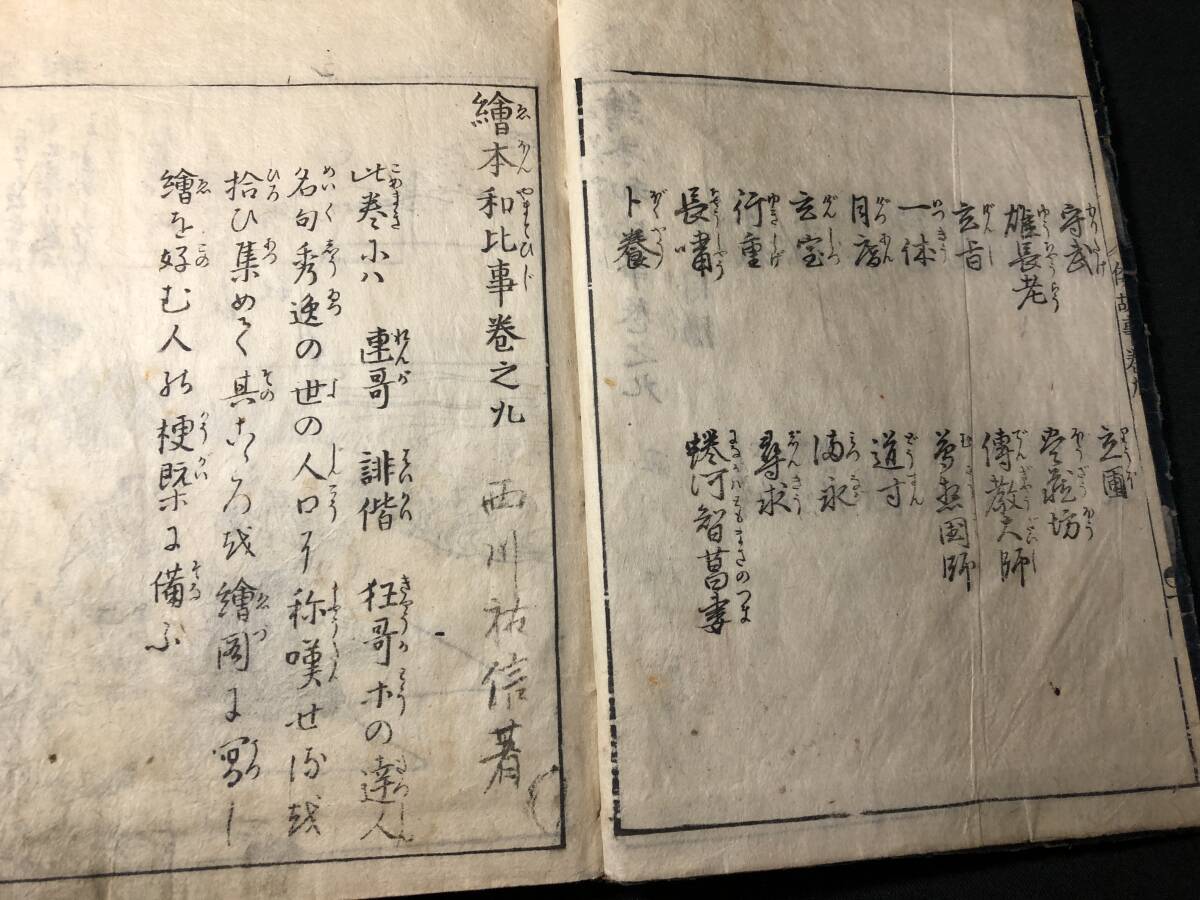 守武
雄長老
玄旨
一休
月庵
玄室
行重
長嘯
卜養
立圃
傳教大師
夢想国師
道寸
満永
尋求
蜷河智薀妻
繪本和比事卷之九 西川祐信著
此巻にハ 連哥 誹偕 狂哥等の達人
名句秀逸の世の人口に称嘆せるを
拾ひ集めて其こゝろを繪圖に寫し
繪を好む人の梗槩に備ふ